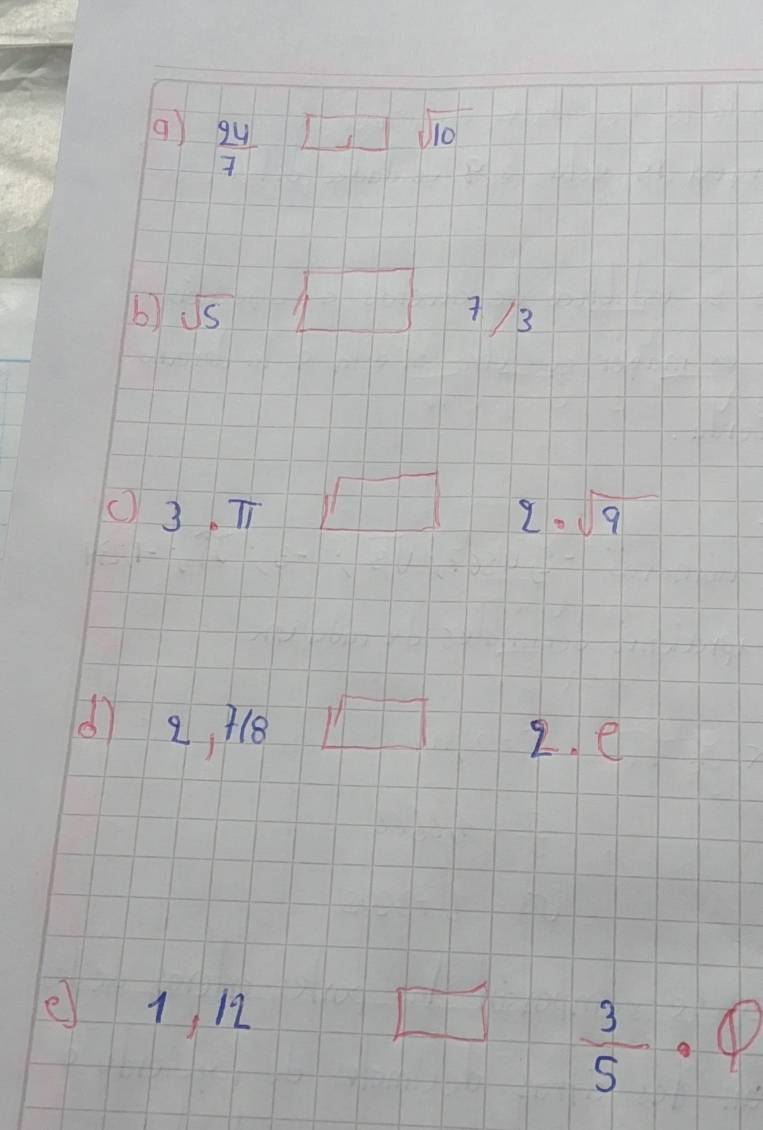 a) 24/7 □ √10
b) √5 □ 7/3
c) 3 . π □ 2 . √9
d) 2,718 □ 2 . e
e) 1,12 □ 3/5 . φ